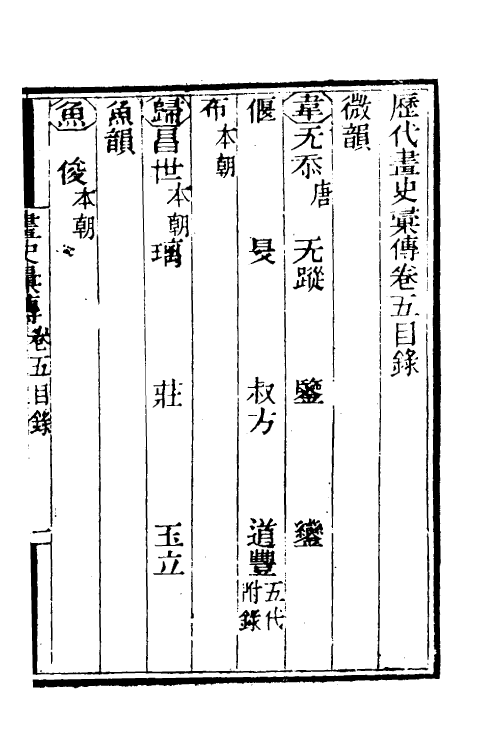 歷代畫史彙傳卷五目錄
微韻
韋无忝唐 无蹤 鑒 鑾
偃 旻 叔方 道豐五代附錄
布本朝
歸昌世本朝 瑀 莊 玉立
魚韻
魚 俊本朝
畫史彙傳 卷五目錄 一